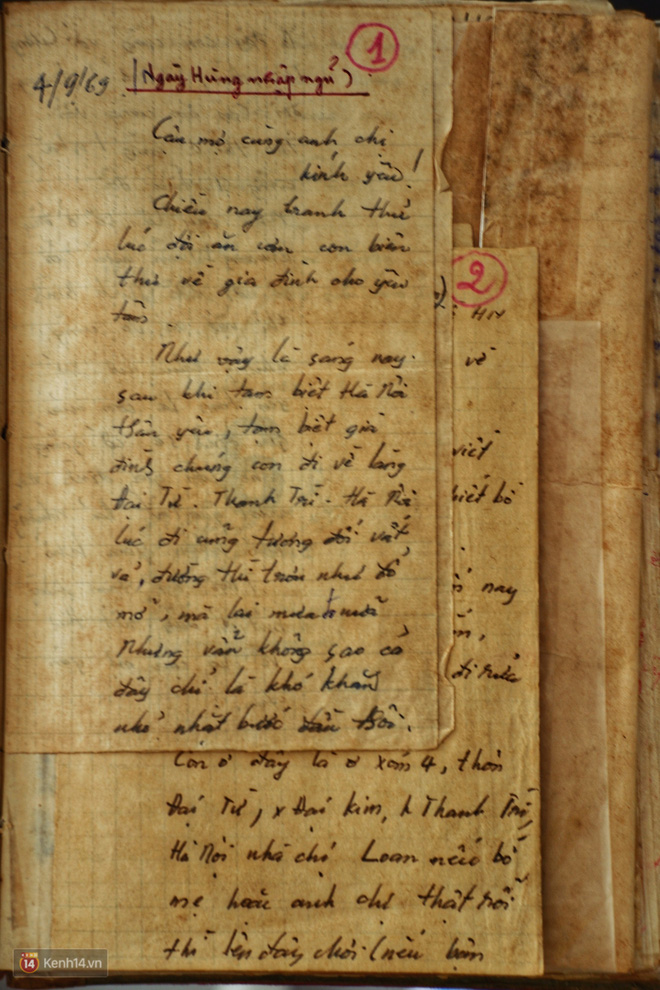 1
4/9/69 (Ngày Hùng nhập ngũ)
Cậu mợ cùng anh chị
kính yêu!
Chiều nay tranh thủ
lúc đợi ăn cơm con biên
thư về gia đình cho yên
tâm.
Như vậy là sáng nay
sau khi tạm biệt Hà Nội
thân yêu, tạm biệt gia
đình chúng con đi về làng
Đại Từ. Thanh Trì. Hà Nội
lúc đi cũng tương đối vất
vả, đường thì trơn như đổ
mỡ, mà lại mưa nữa
Nhưng vẫn không sao cả
đây chỉ là khó khăn
nhỏ nhặt bước đầu thôi.
2
về
viết
biết bố
nay
đi rửa
Con ở đây là ở xóm 4, thôn
Đại Từ, x Đại Kim, h Thanh Trì,
Hà Nội nhà chị Loan nếu bố
mẹ hoặc anh chị thật rỗi
thì lên đây chơi (nếu bận
14 Kenh14.vn